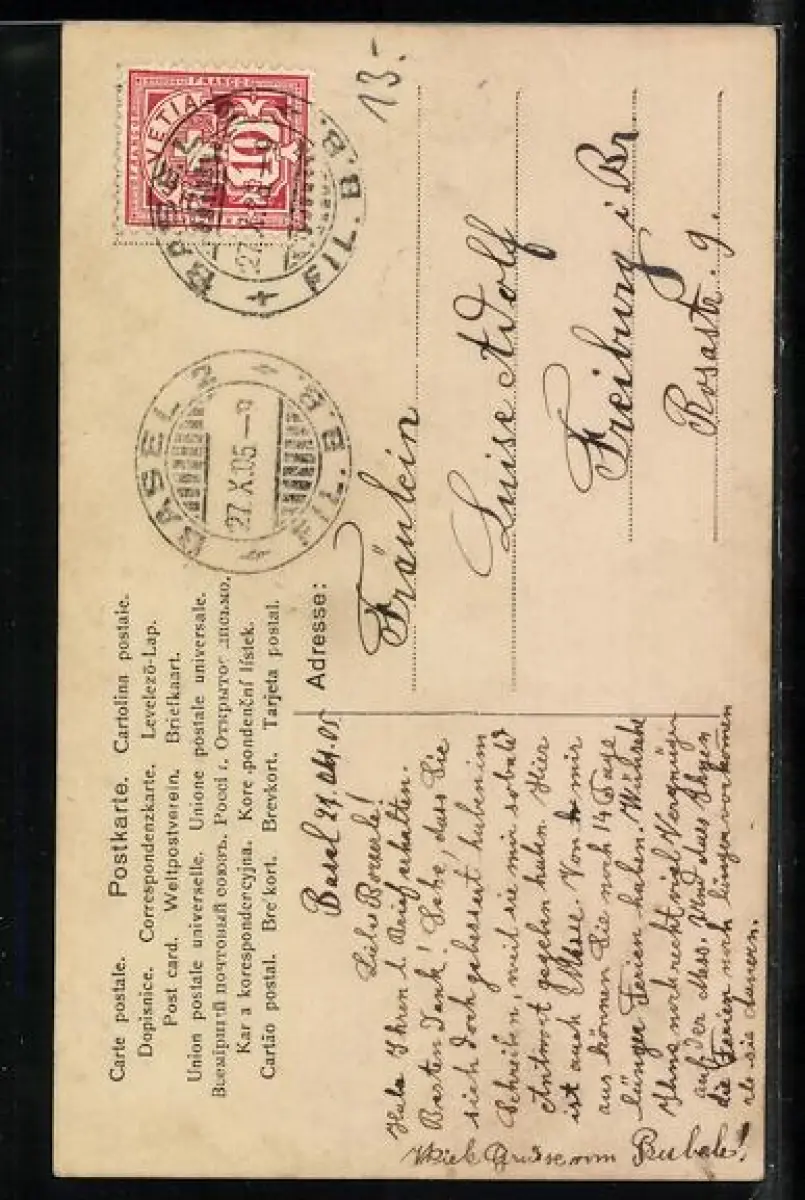 Carte postale. Postkarte. Cartolina postale.
Dopisnice. Correspondenzkarte. Levelező-Lap.
Post card. Weltpostverein. Briefkaart.
Union postale universelle. Unione postale universale.
Всемірный почтовый союзъ. Россія. Открытое письмо.
Karta korespondencyjna. Korespondenční lístek.
Cartão postal. Brefkort. Brevkort. Tarjeta postal.
FRANCO
HELVETIA
10
BASEL 2
FIL. B.B.
BASEL 2
27.X.05
FIL. B.B.
13.-
Adresse:
Fräulein
Luise Adolf
Freiburg i Br
Rosastr. 9.
Basel 27. Okt. 05
Habe Ihren l. Brief erhalten.
Besten Dank! Sehe, dass Sie
sich doch gebessert haben im
Schreiben, weil sie mir sobald
Antwort gegeben haben. Hier
ist auch Messe. Von mir
aus können Sie noch 14 Tage
länger Ferien haben. Wünsche
Ihnen noch recht viel Vergnügen
auf der Mess. Und dass Ihnen
die Ferien noch länger vorkommen
als sie dauern.
Viele Grüsse vom